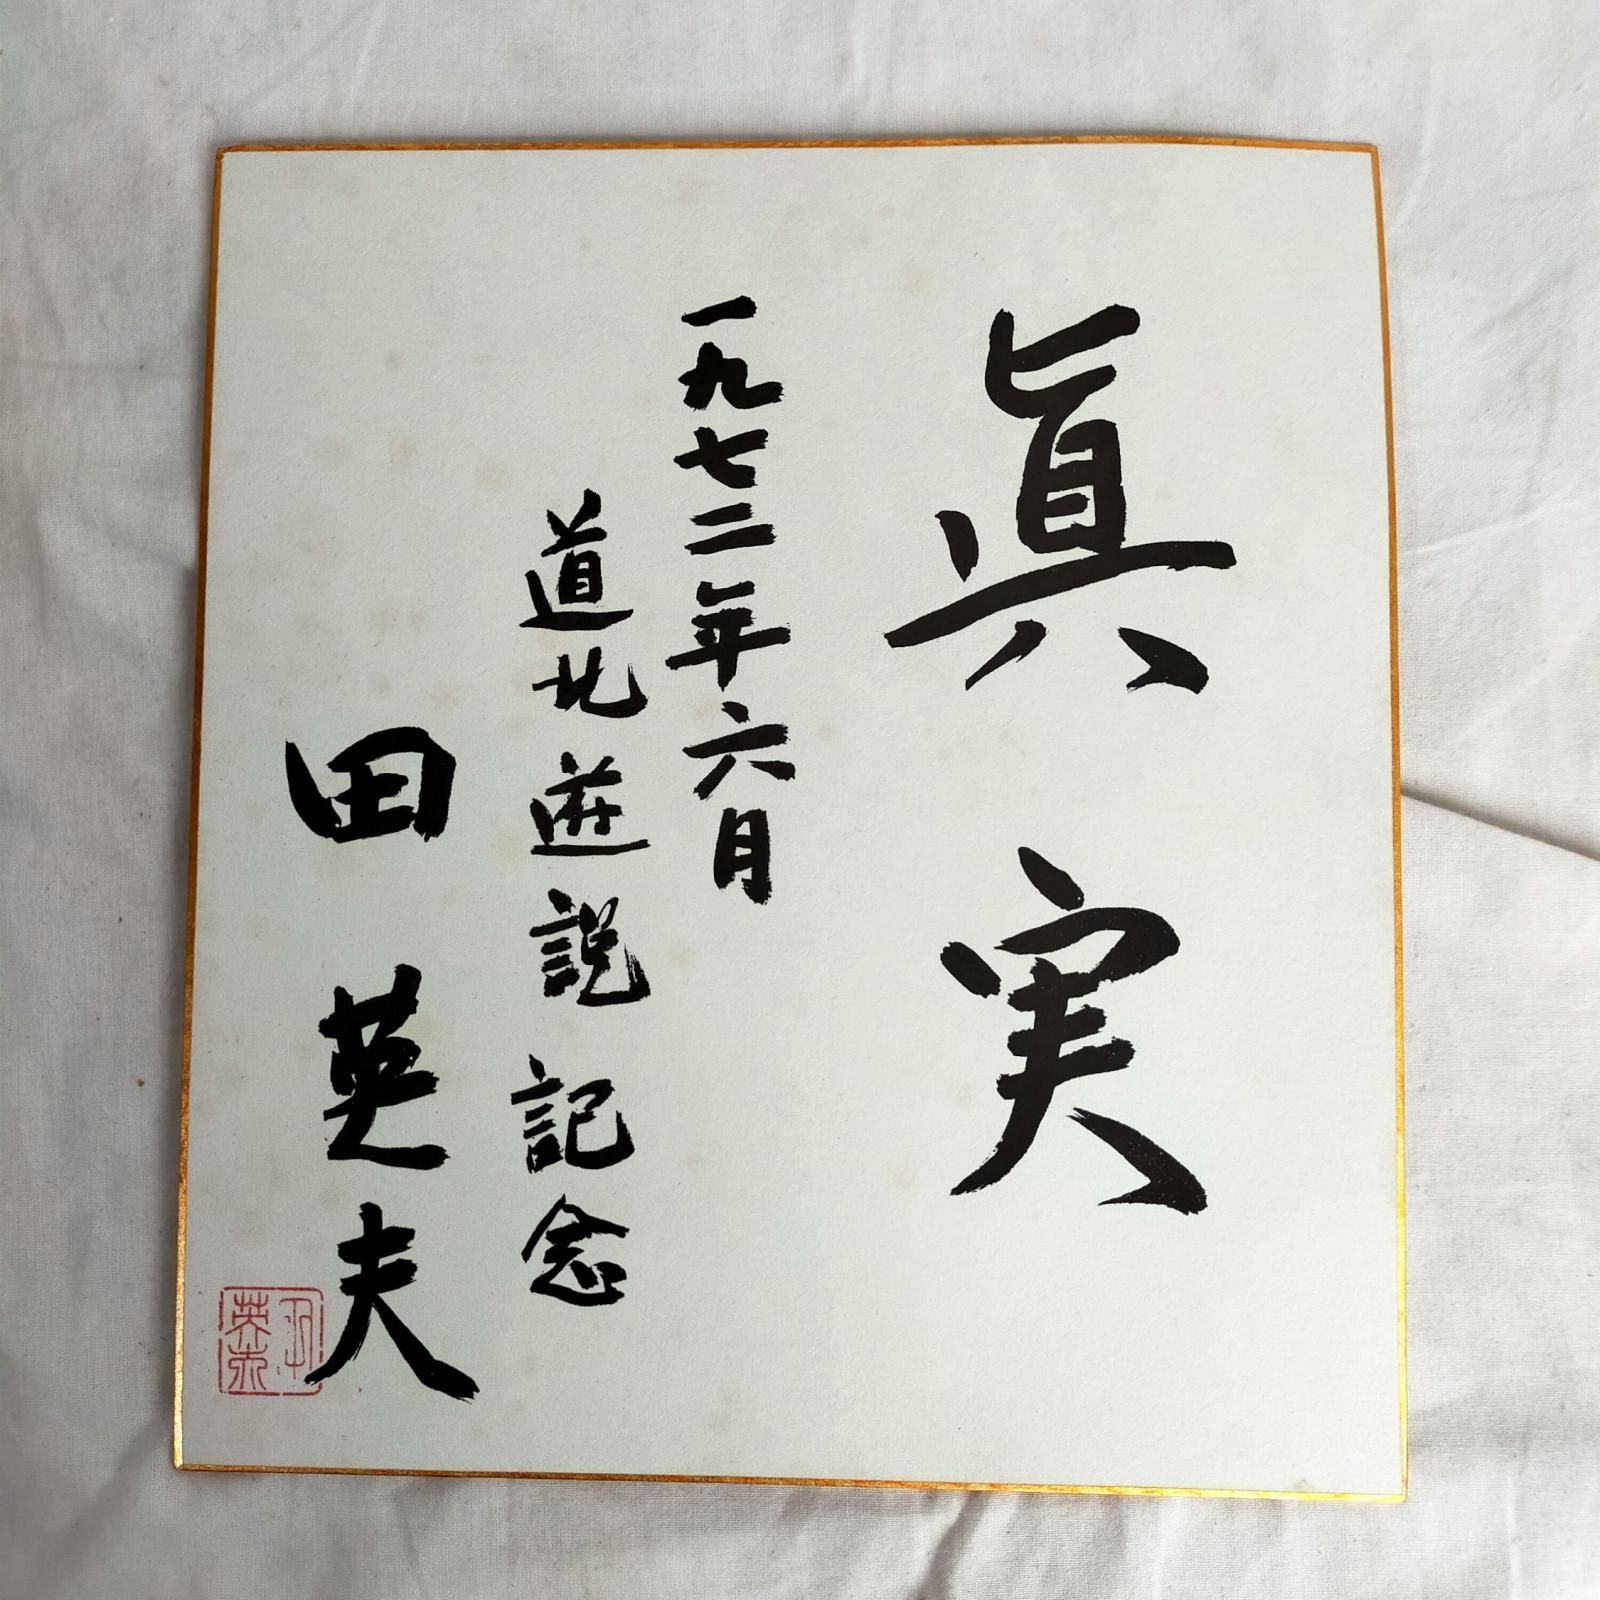 眞実
一九七二年六月
道北遊説記念
田英夫